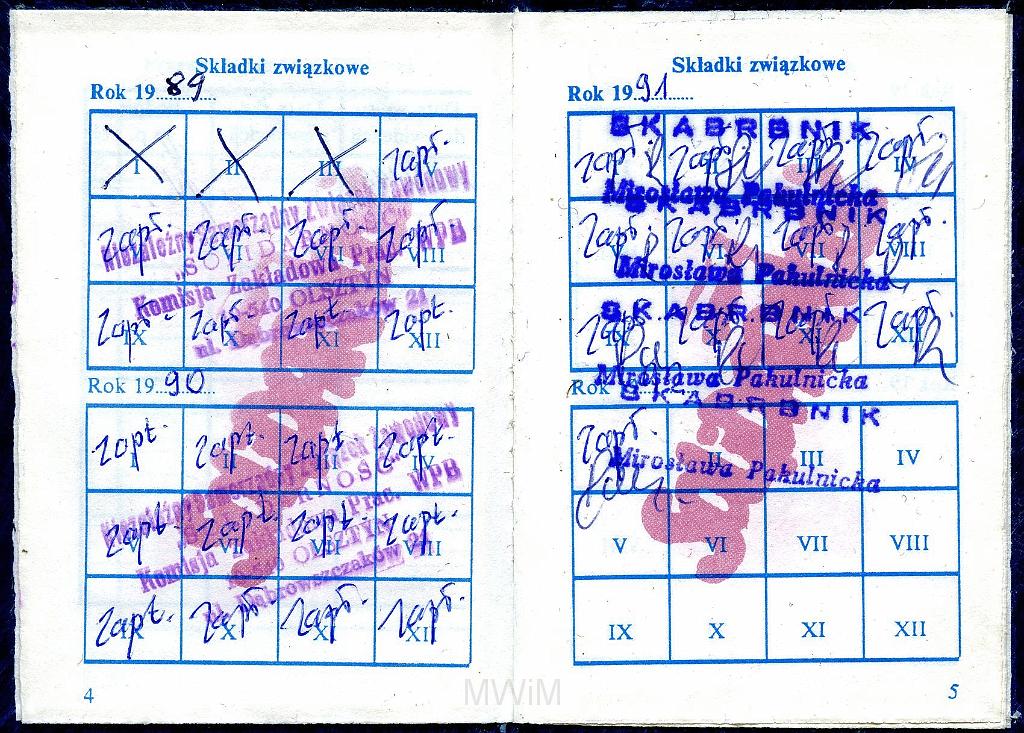 Składki związkowe
Rok 19 89
I II III zapł. IV
zapł. V zapł. VI zapł. VII zapł. VIII
zapł. IX zapł. X zapł. XI zapł. XII
Niezależny Samorządny Związek Zawodowy
„SOLIDARNOŚĆ”
Komisja Zakładowa Prac. WPB
OLSZTYN
ul. Dąbrowszczaków 21
Rok 19 90
zapł. I zapł. II zapł. III zapł. IV
zapł. V zapł. VI zapł. VII zapł. VIII
zapł. IX zapł. X zapł. XI zapł. XII
Niezależny Samorządny Związek Zawodowy
„SOLIDARNOŚĆ”
Komisja Zakładowa Prac. WPB
OLSZTYN
ul. Dąbrowszczaków 21
4
Składki związkowe
Rok 19 91
SKARBNIK
zapł. zapł. zapł. zapł. IV
Mirosława Pakulnicka
SKARBNIK
zapł. V zapł. VI zapł. VII zapł. VIII
Mirosława Pakulnicka
SKARBNIK
zapł. IX zapł. X zapł. XI zapł. XII
Mirosława Pakulnicka
Rok
SKARBNIK
zapł. II III IV
Mirosława Pakulnicka
V VI VII VIII
IX X XI XII
5
MWiM